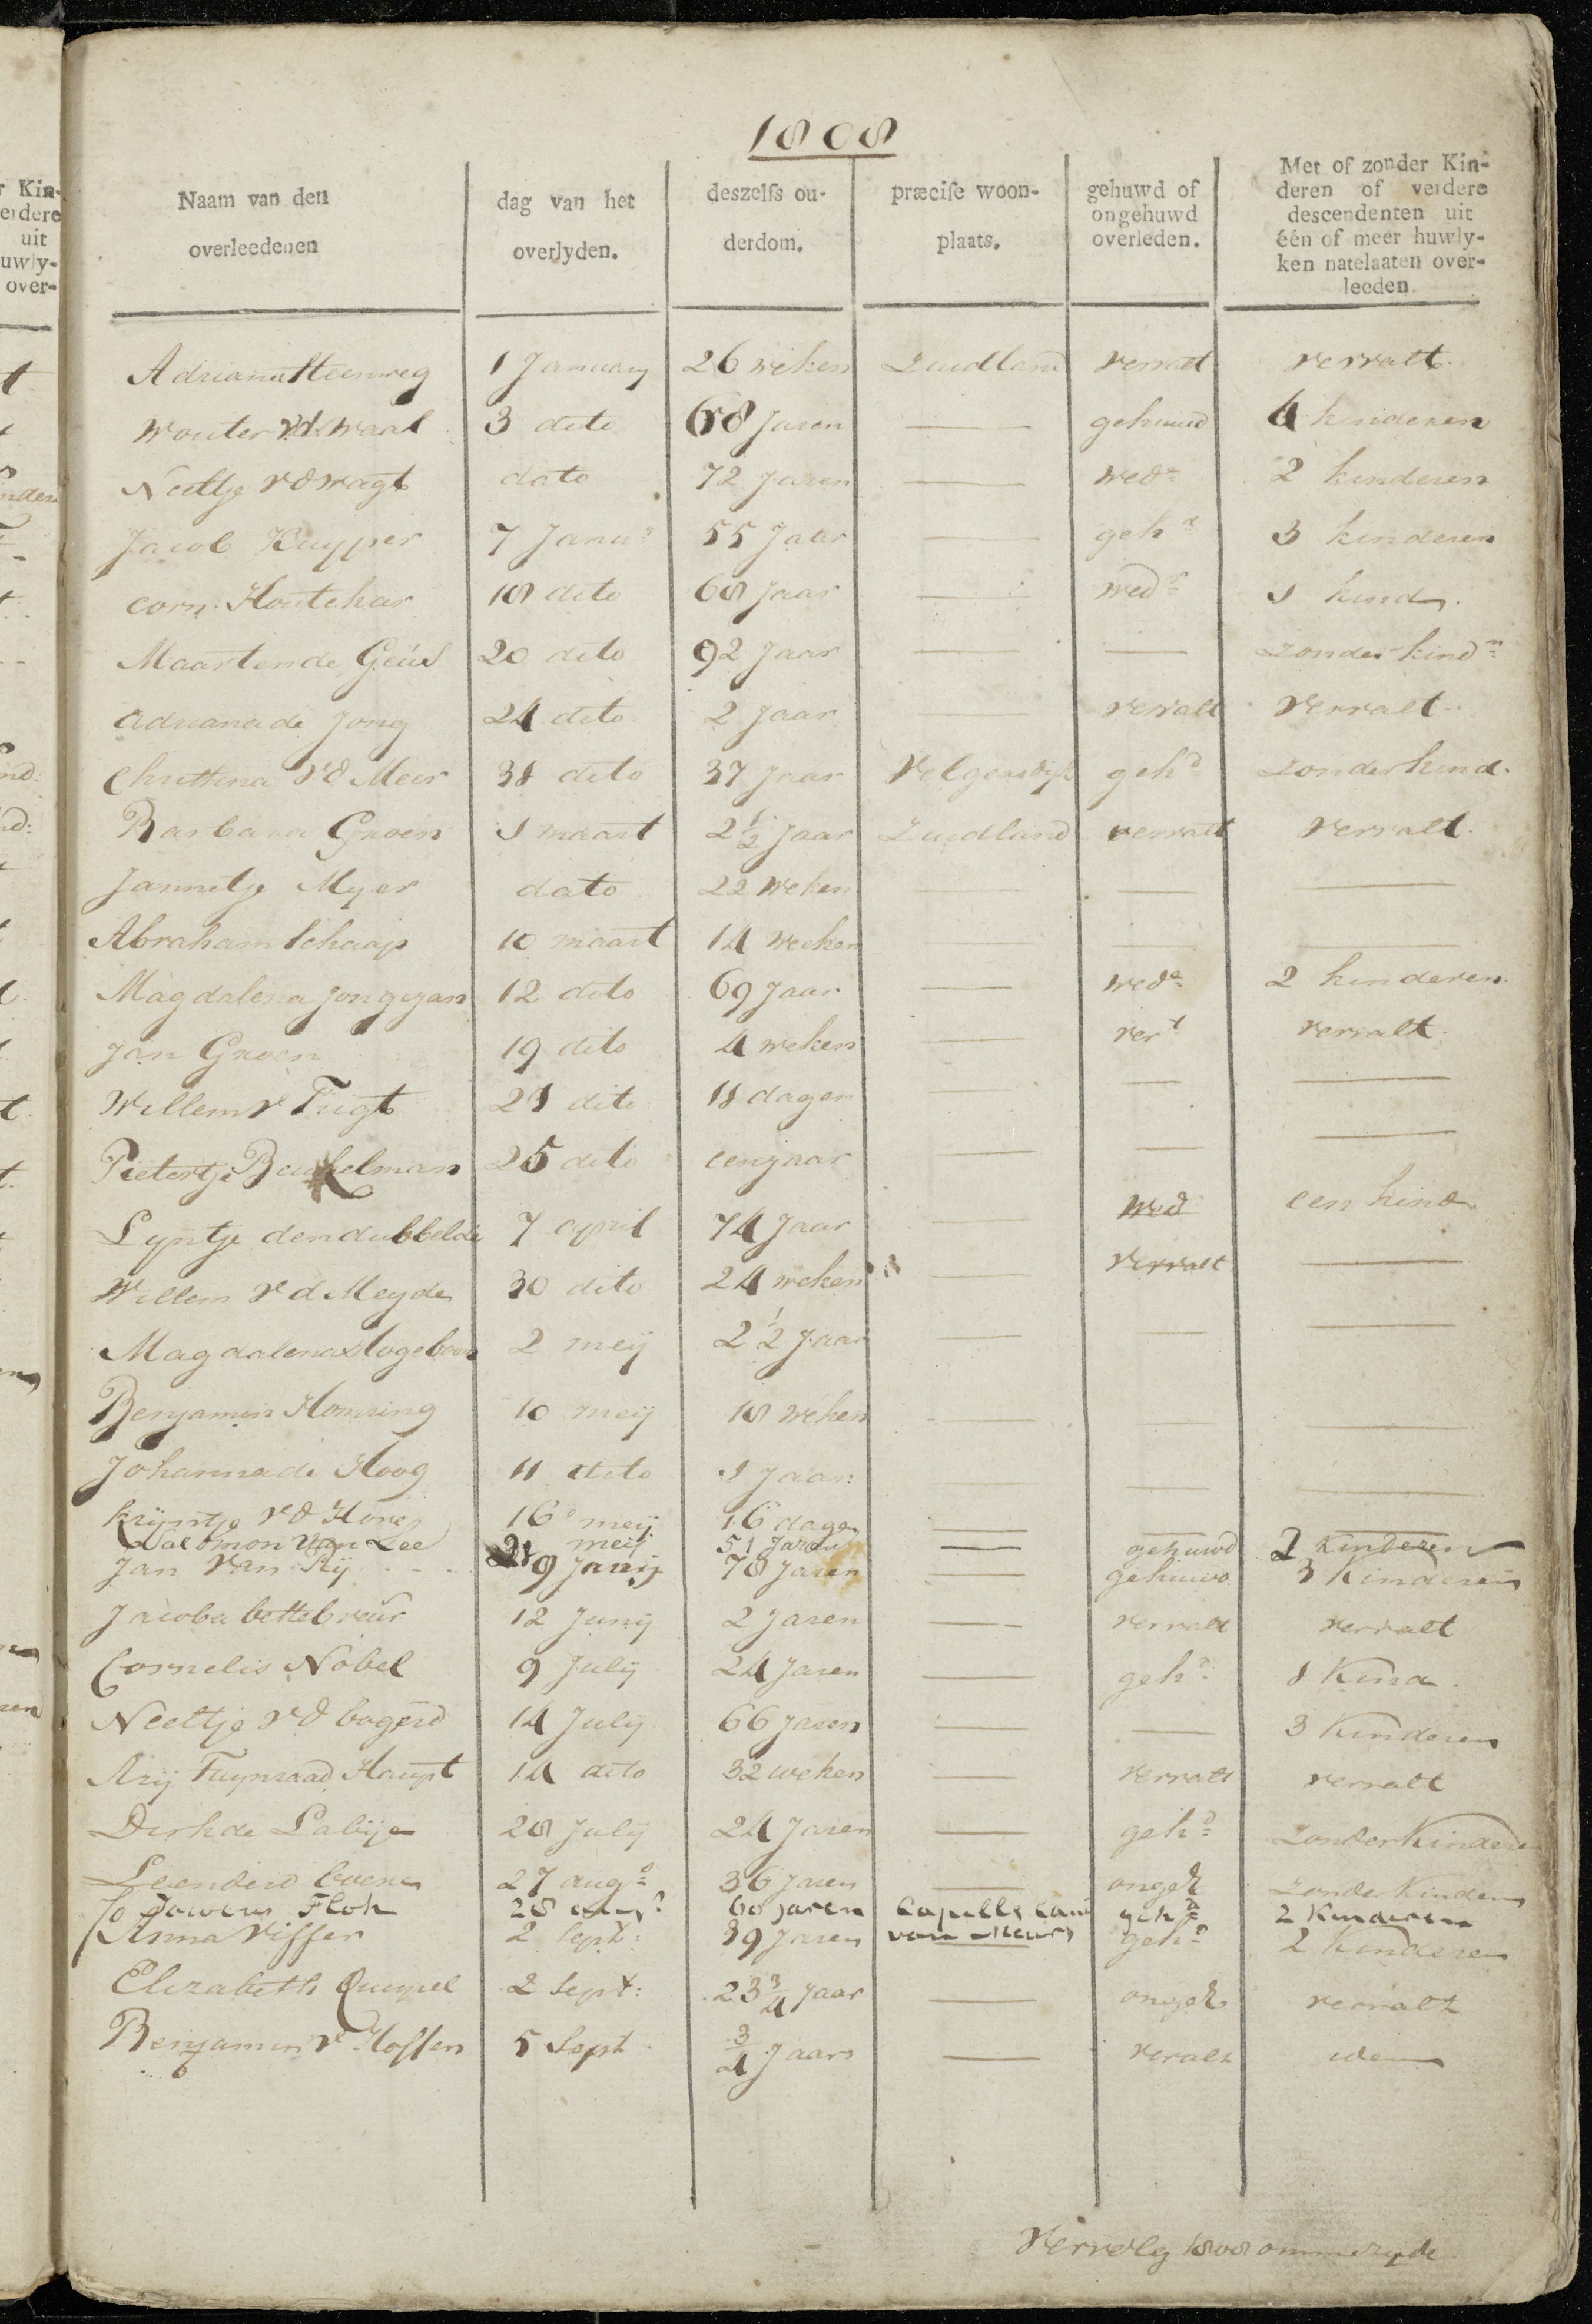 1808
Naam van den overleedenen | dag van het overlyden. | deszelfs ouderdom. | præcise woonplaats. | gehuwd of ongehuwd overleden. | Met of zonder Kinderen of verdere descendenten uit één of meer huwlyken natelaaten overleeden
Adriana Steenweg | 1 January | 26 weken | Zuidland | vervalt | vervalt.
Wouter vd. Waal | 3 dito | 68 Jaren | — | gehuwd | 4 kinderen
Neeltje vd Wagt | dato | 72 Jaren | — | wede | 2 kinderen
Jacob Kuyper | 7 Janu | 55 Jaar | — | gehd | 3 kinderen
Corn: Houtekar | 18 dito | 68 Jaar | — | wedr | 1 kind.
Maarten de Geus | 20 dito | 92 Jaar | — | — | zonder kindn
Adriana de Jong | 24 dito | 2 Jaar | — | vervalt | vervalt.
Christina vd Meer | 31 dito | 37 Jaar | Velgersdijk | gehd | zonder kind.
Barbara Groen | 1 maart | 2½ Jaar | Zuidland | vervalt | vervalt.
Jannetje Myer | dato | 22 weken | — | — | —
Abraham Schaap | 10 maart | 14 weeken | | — | —
Magdalena Jongejan | 12 dito | 69 Jaar | — | wede | 2 kinderen.
Jan Groen | 19 dito | 4 weken | — | vert | vervalt.
Willem v Tugt | 21 dito | 11 dagen | — | — | —
Pietertje Beukelman | 25 dito | eenjaar | — | — | —
Lyntje den dubbelde | 7 april | 74 Jaar | — | wed | een kind
Willem v d Meyde | 30 dito | 24 weken | — | vervalt | —
Magdalena Hogeboom | 2 meij | 2½ Jaar | — | — | —
Benjamin Homring | 10 meij | 18 weken | — | — | —
Johanna de Hoog | 11 dito | 1 Jaar | | — | —
Krijntje vd Hove | 16 meij | 16 dagen | — | — | —
Salomon van Lee | 21 meij | 51 Jaren | — | gehuwd | 2 Kinderen
Jan van Rij | 9 Junij | 78 Jaren | — | gehuwd | 3 Kinderen
Jacoba bettebreur | 12 Junij | 2 Jaren | — | vervalt | vervalt
Cornelis Nobel | 9 Julij | 24 Jaren | — | gehd | 1 Kind.
Neeltje vd bogerd | 14 Julij | 66 Jaren | — | — | 3 Kinderen
Arij Tuynraad Haupt | 14 dito | 32 weken | — | vervalt | vervalt
Dirk de Labije | 28 Julij | 24 Jaren | — | gehd | zonder Kinderen
Leenderd boer | 27 augs | 36 Jaren | — | ongeh | zonder Kinderen
Flok | 28 | 60 jaren | Capelle land van | gehd | 2 Kinderen
Anna Visser | 2 Sept: | 39 Jaren | — | gehd | 2 Kinderen
Elizabeth Quypel | 2 Sept: | 23¾ Jaar | — | ongeh | vervalt
Benjamin v Hoffen | 5 Sept | ¾ Jaars | — | veralt | idem
Vervolg 1808 ommezyde